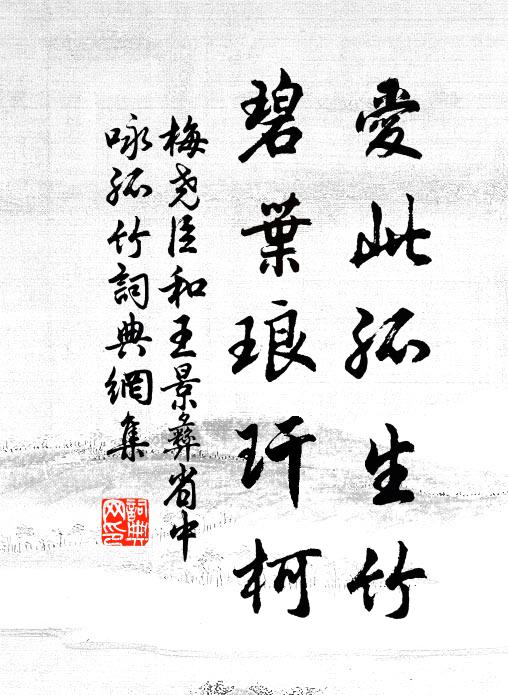 愛此孤生竹
碧葉琅玕柯
梅堯臣和王景彝省中
咏孤竹詞典網集
詞典
网印